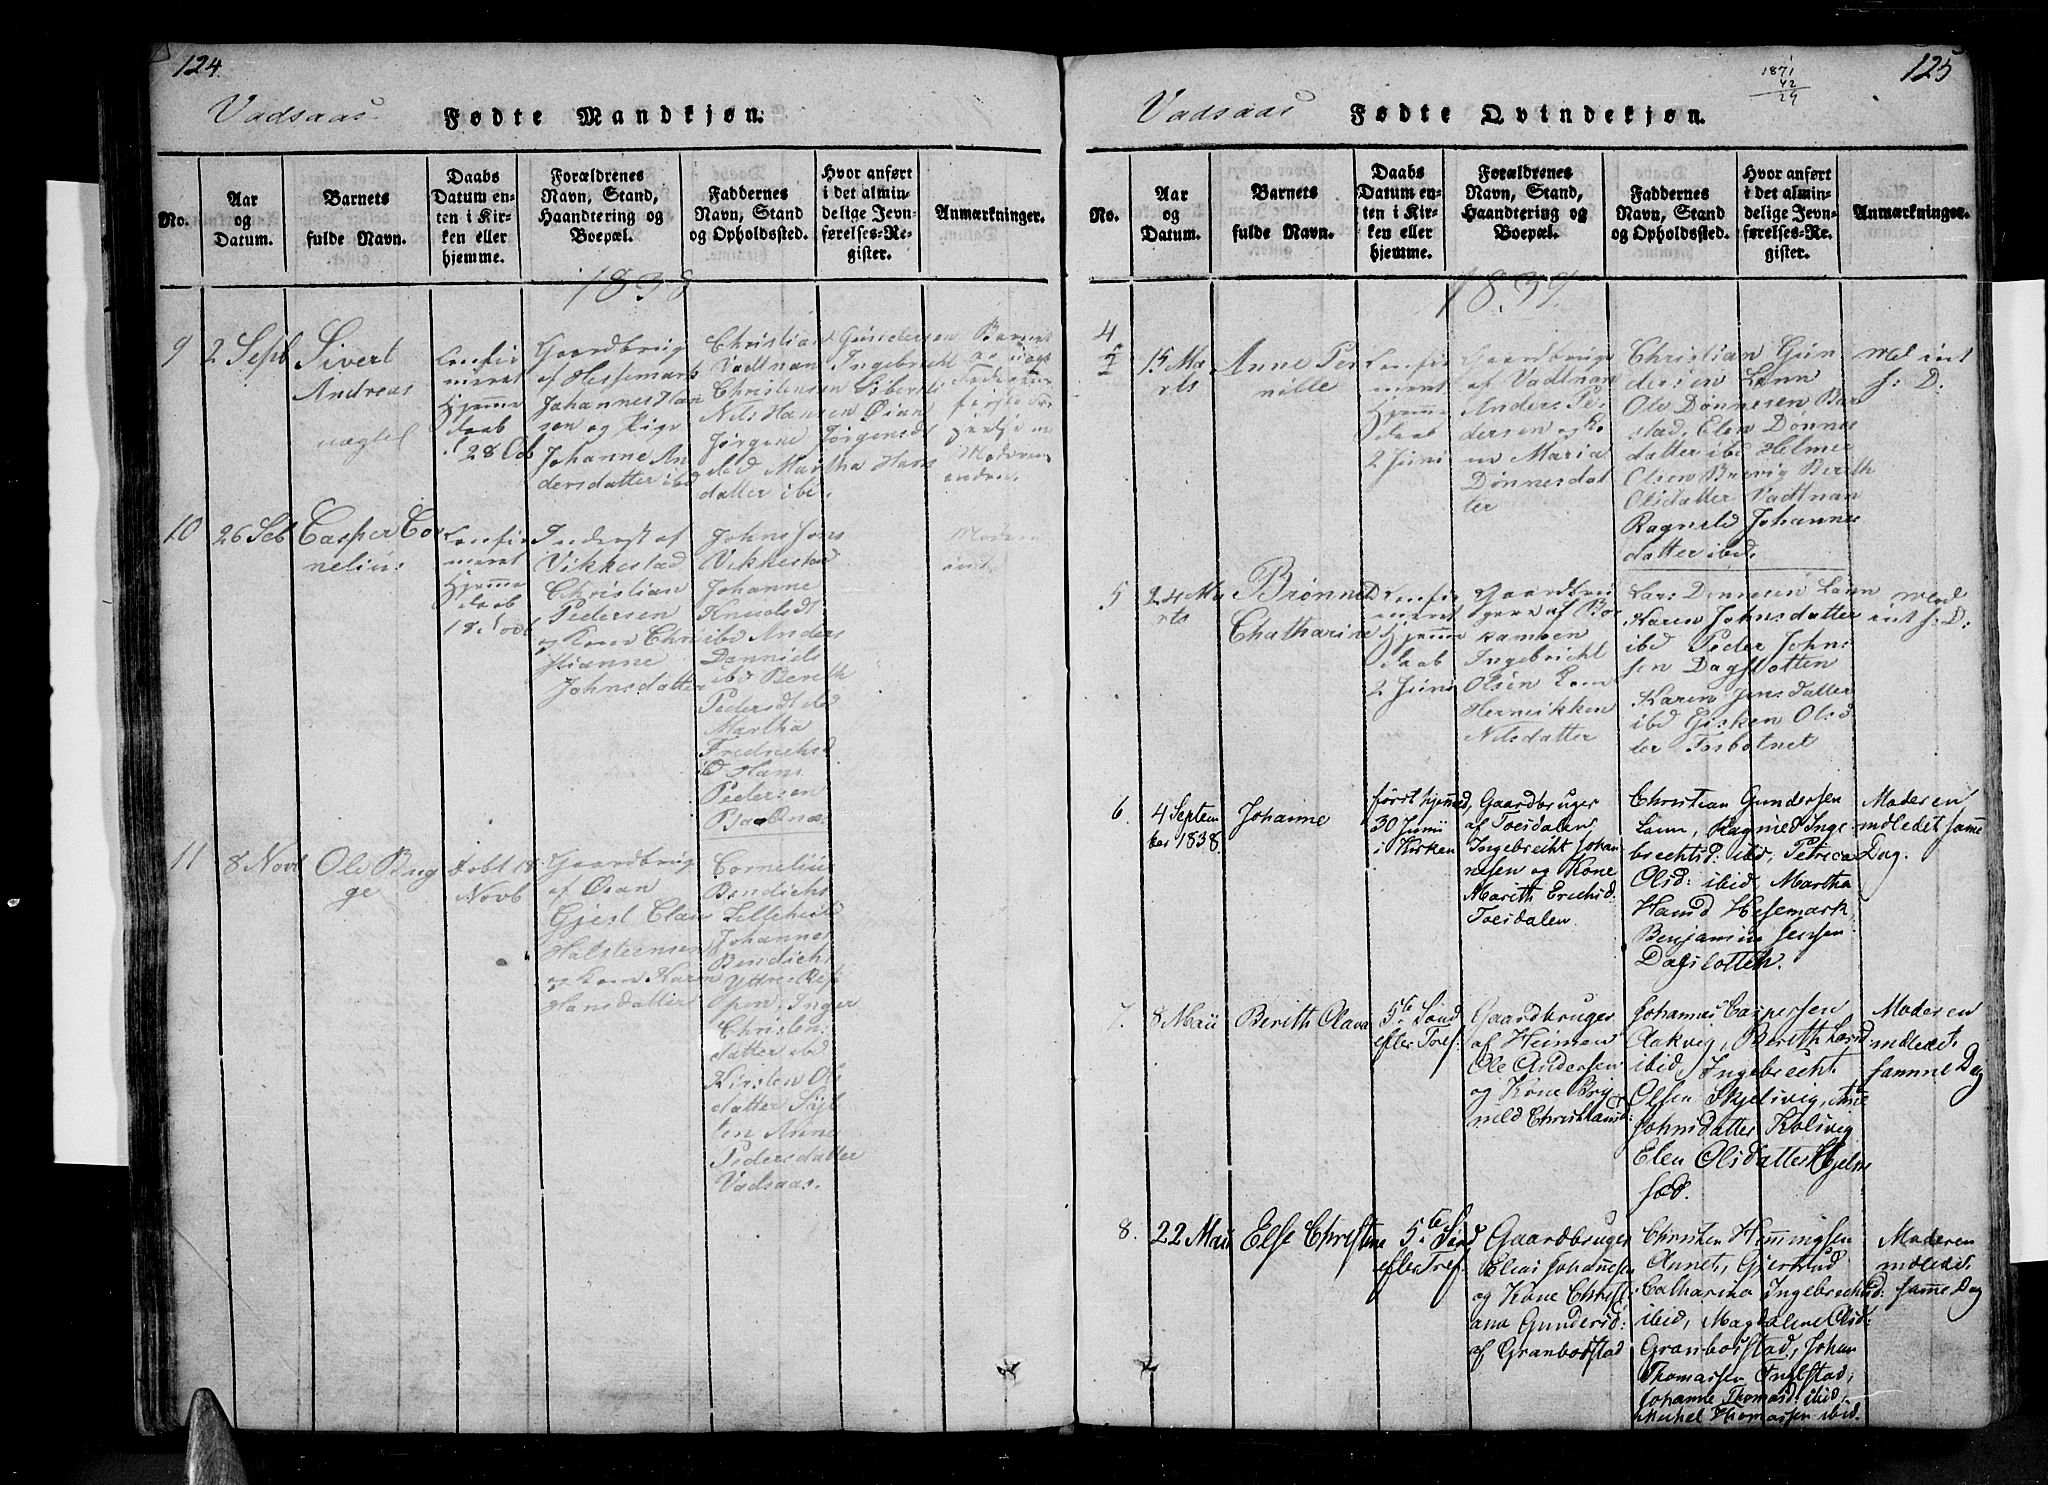 124.
Vadsaas Fødte Mandkjøn.
No.
Aar
og
Datum.
Barnets
fulde Navn.
Daabs
Datum en-
ten i Kir-
ken eller
hjemme.
Forældrenes
Navn, Stand,
Haandtering og
Boepæl.
Faddernes
Navn, Stand
og Opholdssted.
Hvor anført
i det almin-
delige Jevn-
førelses-Re-
gister.
Anmærkninger.
1838
9
2 Septb
Sivert
Andreas
uægtel
Confir
meret
Hjemme
daab
28 Octb
Gaardbrug
af Hessemark
Johannes Han
sen og Pige
Johanne An
dersdatter ibd
Christian Gundersen
Vadtnan Ingebricht
Christensen
Nils Hansen Øian
Jørgine Jørgensdt
ibid Martha Hans
datter ibi.
10
26 Seb
Casper Co
nelius
Confir
meret
Hjemme
daab
18 Novb
Inderst af
Vikkestad
Christian
Pedersen
og Kone Chri
stianne
Johnsdatter
John Jons
Vikkestad
Johanne
Knudsdt
ibd Anders
Danniels
ibd Bereth
Pedersdt ibd
Martha
Fredrichsd
ibd Hans
Pedersen
Moderen
int.
11
8 Novb
Ole Bug
ge
Døbt 18
Novb
Gaardbrug
af Øian
Gjert Clau
Halsteensen
og Kone Karen
Hansdatter
Cornelius
Bendichs
Johannes
Bendichs
Yttre Ref
Inger
Christen
datter ibd
Kirsten Ol
datter Sylt
ten Anne
Pedersdatter
Vadsaas.
125
1871
42
29
Vadsaas Fødte Qvindekjøn.
No.
Aar
og
Datum.
Barnets
fulde Navn.
Daabs
Datum en-
ten i Kir-
ken eller
hjemme.
Forældrenes
Navn, Stand,
Haandtering og
Boepæl.
Faddernes
Navn, Stand
og Opholdssted.
Hvor anført
i det almin-
delige Jevn-
førelses-Re-
gister.
Anmærkninger.
1839
4
15 Ma
rts
Anne Per
nille
Confir
meret
Hjemme
daab
2 Juni
Gaardbruge
af Vadtnan
Anders Pe
dersen og Ko
ne Maria
Dønnesdat
ter
Christian Gun
dersen Lønn
Ole Dønnesen Bar
stad, Elen Dønnes
datter ibd Helmer
Olsen Brevig Bereth
Olsdatter Vadtnan
Ragnild Johannes
datter ibid.
med int
f: D.
5
24 Ma
rts
Brønne
Chatharine
Confir
meret
Hjemme
daab
2 Juni
Gaardbru
gere af Bo
kamoen
Ingebricht
Olsen Kone
Hennikken
Nilsdatter
Lars Dønnesen Lønn
Karen Johnsdatter
ibd Peder Johns
sen Dagslotten
Karen Jensdatter
ibd Gisken Olsd
ter Tosbotnet
med
int f: D:
6.
4 Septem
ber 1838.
Johanne
først hjemmed,
30 Junii
i Kirken
Gaardbruger
af Toesdalen
Ingebrecht Johan
nesen og Kone
Mareth Erichsd:
Toesdalen.
Christian Gundersen
Lønn, Ragnild Inge
brechtsd: ibid, Petrica
Olsd: ibid, Martha
Hansd Hesemark,
Benjamin Jensen
Dagslotten.
Moderen
indledet samme
Dag.
7.
8 Maii
Berith Olava
5te Sönd
efter Tref:
Gaardbruger
af Heimen
Ole Andersen
og Kone Brig
nild Christiansd:
Johannes Caspersen
Aakvig, Berith Larsd
ibid, Ingebrecht
Olsen Skjelsvig, Anne
Johnsdatter Kolsvig
Elen Olsdatter Hjelm
sæd.
Moderen
indledet
samme Dag
8.
22 Maii
Else Christine
5te Sönd
efter Tref:
Gaardbruger
Elias Johannesen
og Kone Christi
ana Gundersd:
af Granbostad
Christen Hemmingsen
Aunet, Giertrud
Catharina Ingebrechtsd:
ibid, Magdalene Olsd:
Granbostad, Johan
Thomassen Engelstad,
Johanne Thomasd: ibid
Michel Thomassen ibid.
Moderen
indledet
samme Dag